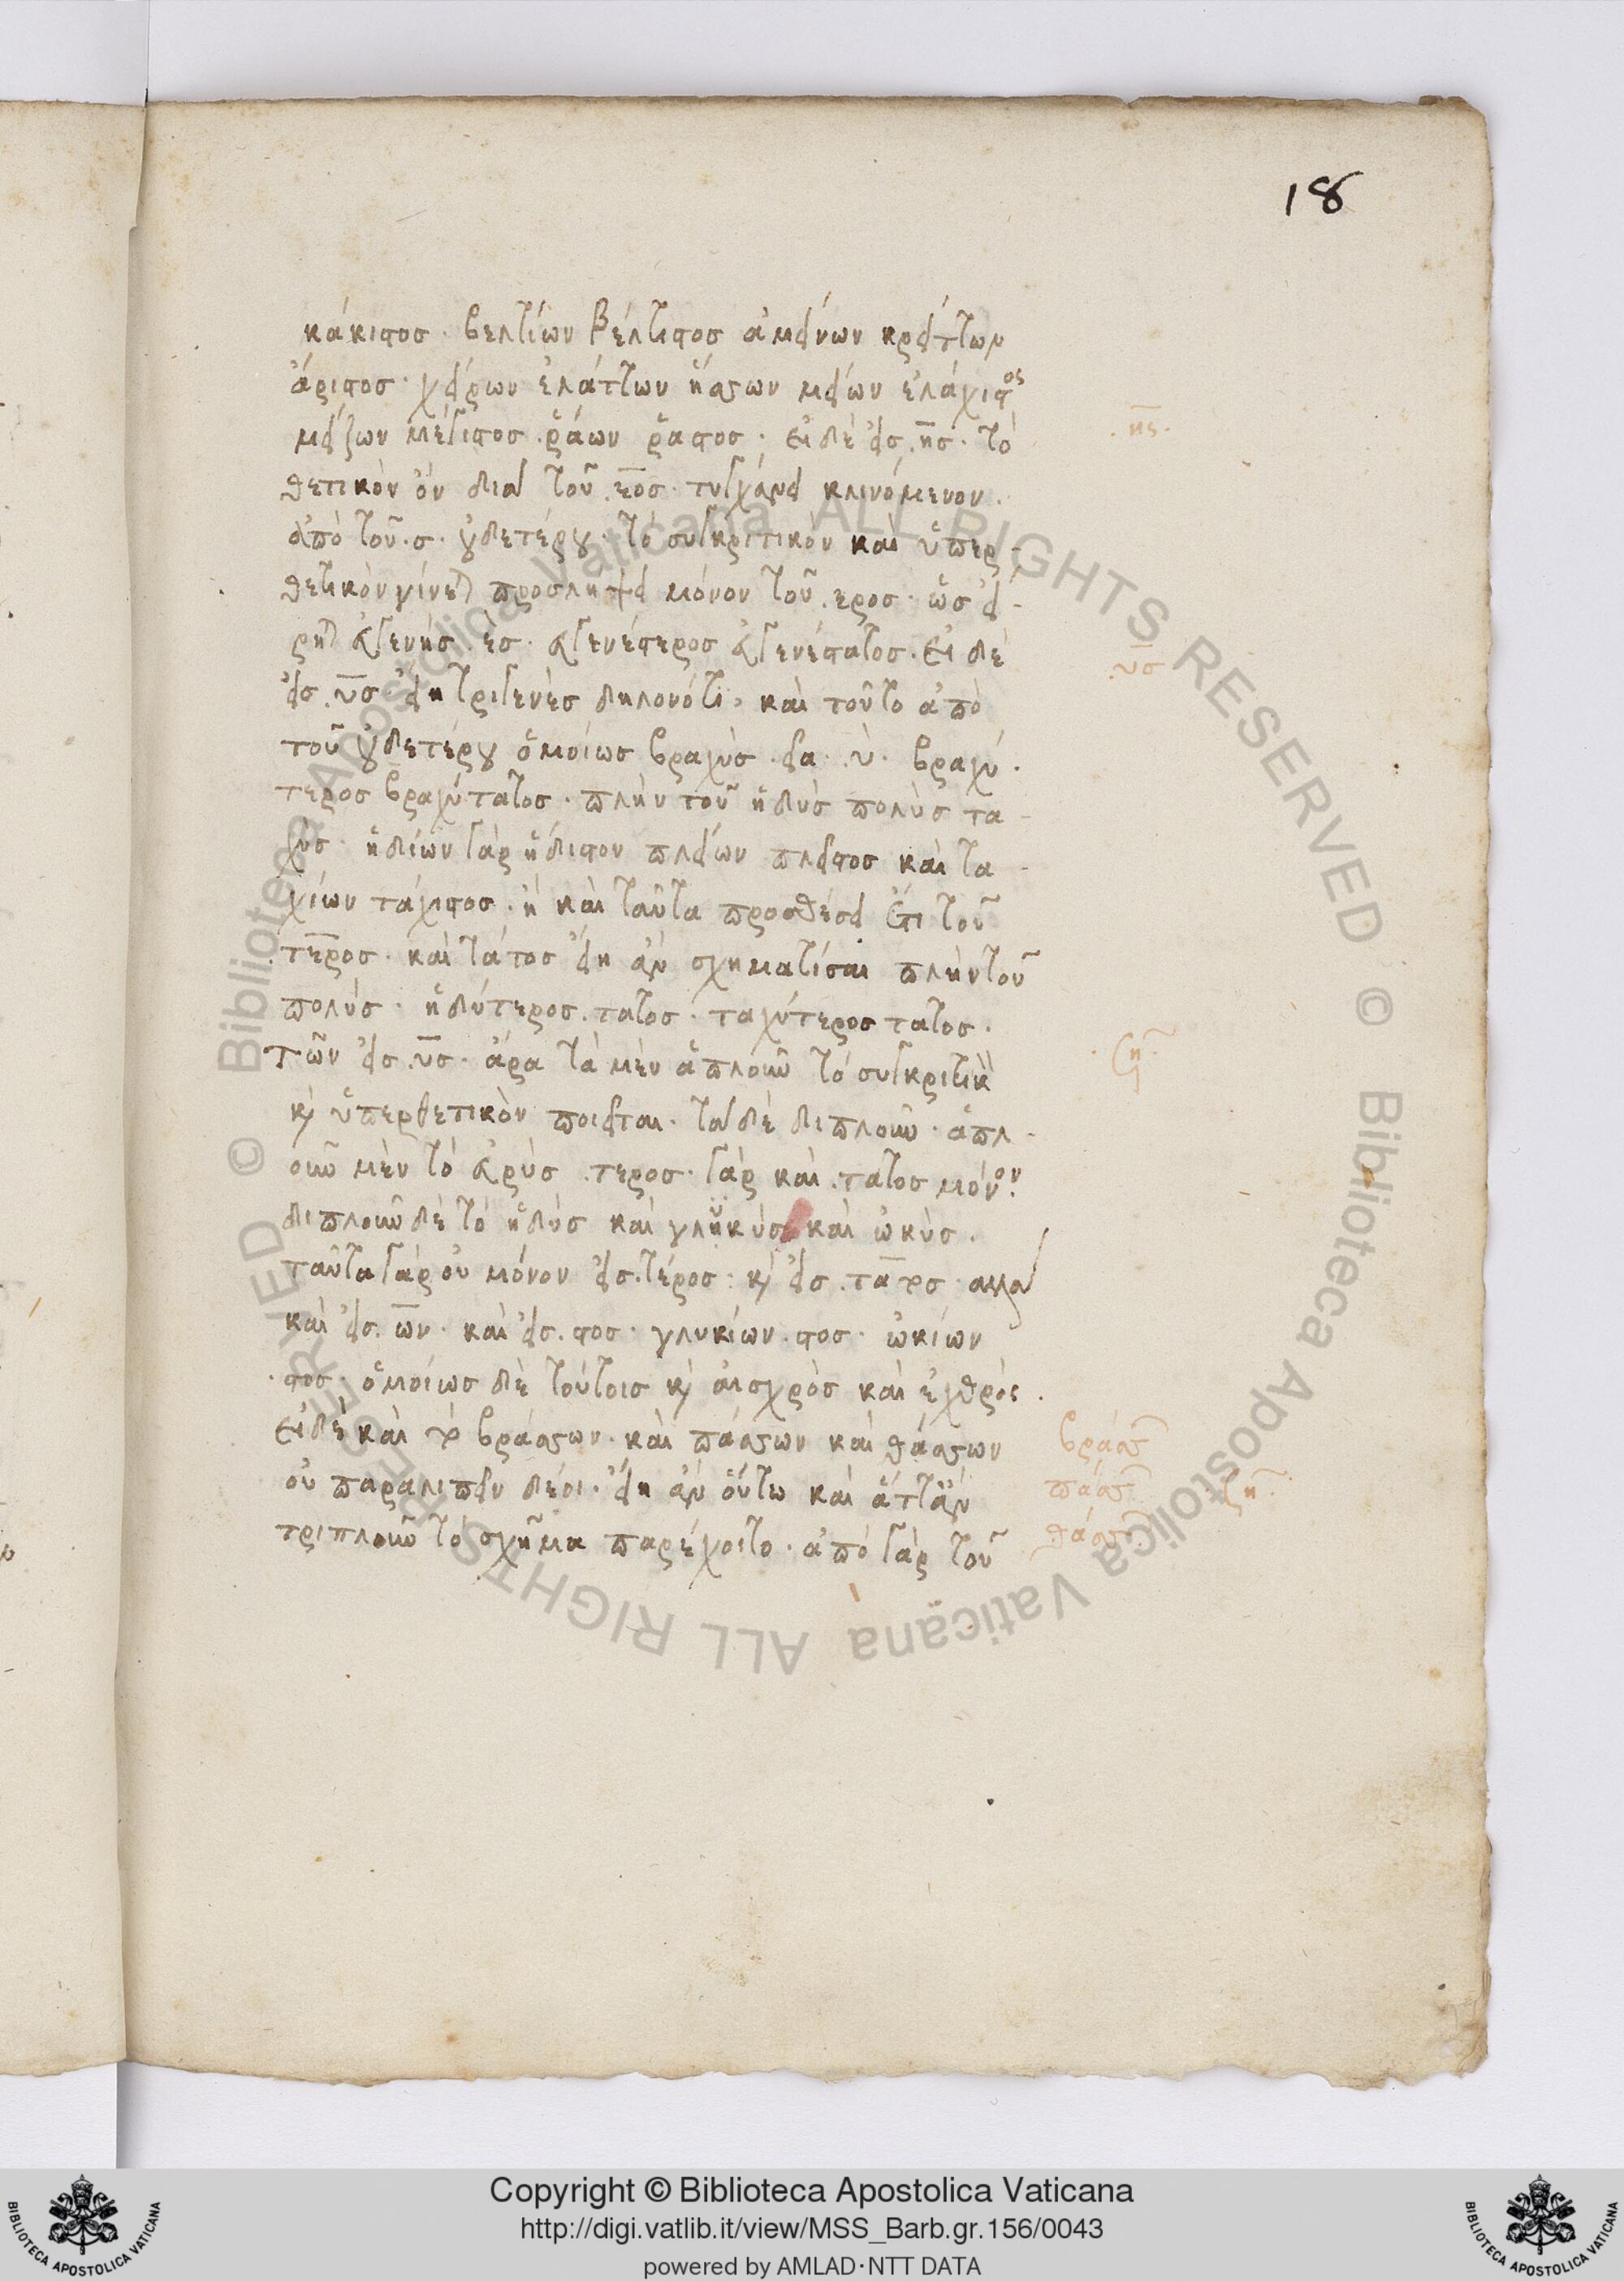 18
κάκιστος · βελτίων βέλτιστος ἀμείνων κρείττων
ἄριστος · χείρων ἐλάττων ἥσσων μείων ἐλάχιστος
μείζων μέγιστος · ῥάων ῥᾶστος · εἰ δὲ εἰς · ης · τὸ
· ης ·
θετικὸν ὂν διὰ τοῦ · εος · τυγχάνει κλινόμενον ·
ἀπὸ τοῦ · σ · οὐδετέρου · τὸ συγκριτικὸν καὶ ὑπερ-
θετικὸν γίνεται προσλήψει μόνον τοῦ · ερος · ὡς εἴ-
ρηται ἀσθενής · ές · ἀσθενέστερος ἀσθενέστατος · εἰ δὲ
εἰς · υς · εἴη τριγενὲς δηλονότι · καὶ τοῦτο ἀπὸ
· υς
τοῦ οὐδετέρου ὁμοίως βραχὺς · εῖα · ύ · βραχύ-
τερος βραχύτατος · πλὴν τοῦ ἡδὺς πολὺς τα-
χύς · ἡδίων γὰρ ἥδιστον πλείων πλεῖστος καὶ τα-
χίων τάχιστος · ἢ καὶ ταῦτα προσθέσει ἔτι τοῦ
· τερος · καὶ τάτος εἴη ἂν σχηματίσαι πλὴν τοῦ
πολύς · ἡδύτερος · τατος · ταχύτερος τατος ·
Τῶν εἰς · υς · ἄρα τὰ μὲν ἁπλοῦν τὸ συγκριτικὸν
καὶ ὑπερθετικὸν ποιεῖται · τὰ δὲ διπλοῦν · ἁπλ-
οῦν μὲν τὸ · τερος · γὰρ καὶ · τατος μόνον ·
διπλοῦν δὲ τὸ ἡδύς καὶ γλυκύς καὶ ὠκύς ·
ταῦτα γὰρ οὐ μόνον εἰς · τέρος · καὶ εἰς · τατος · ἀλλὰ
καὶ εἰς · ων · καὶ εἰς · στος · γλυκίων · στος · ὠκίων
· στος · ὁμοίως δὲ τούτοις καὶ αἰσχρὸς καὶ ἐχθρός ·
εἰ δὲ καὶ τὸ βράσσων · καὶ πάσσων καὶ θάσσων
βράσσ
οὐ παραλιπεῖν δέοι · εἴη ἂν οὕτω καὶ ἄττ' ἂν
πάσσ
τριπλοῦν τὸ σχῆμα παρέχοιτο · ἀπὸ γὰρ τοῦ
θάσσ
Copyright © Biblioteca Apostolica Vaticana
http://digi.vatlib.it/view/MSS_Barb.gr.156/0043
powered by AMLAD·NTT DATA
BIBLIOTECA APOSTOLICA VATICANA
BIBLIOTECA APOSTOLICA VATICANA
© Biblioteca Apostolica Vaticana ALL RIGHTS RESERVED
© Biblioteca Apostolica Vaticana ALL RIGHTS RESERVED